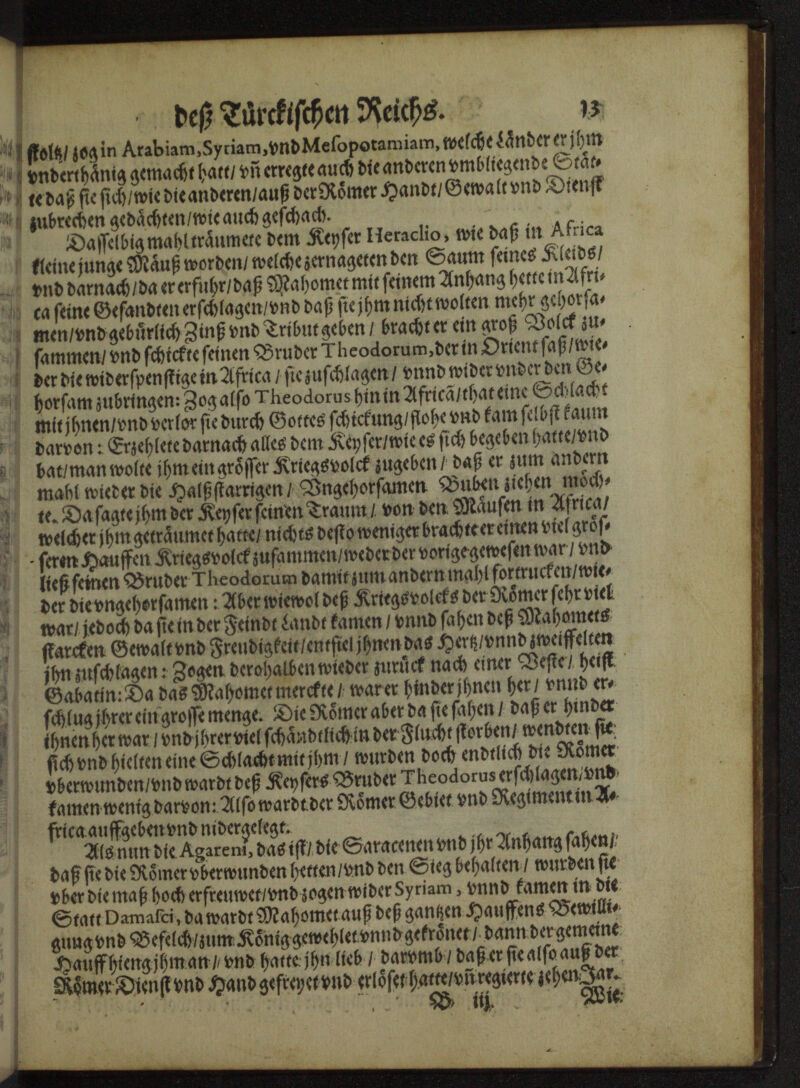 deß Türckischen Reichs. 13
stoltz/ zog in Arabiam, Syriam, vnd Mesopotamiam, welche Länder er jhm
vnderthänig gemacht hatt/ vñ erregte auch die anderen vmbliegende Stät-
te daß sie sich/ wie die anderen/ auß der Römer Handt/ Gewalt vnd Dienst
zubrechen gedächten/ wie auch geschach.
Dasselbig mahl träumete dem Keyser Heraclio, wie daß in Africa
kleine junge Mäuß worden/ welche zernageten den Saum seines Kleids/
vnd darnach/ da er erfuhr/ daß Mahomet mit seinem Anhang hette in Afri-
ca seine Gesandten erschlagen/ vnd daß sie jhm nicht wolten mehr gehorsa-
men/ vnd gebürlich Zinß vnd Tribut geben / bracht er ein groß Volck zu-
sammen/ vnd schickte seinen Bruder Theodorum, der in Orient saß/ wie-
der die widerspenstige in Africa / sie zuschlagen/ vnnd wider vnder den Ge-
horsam zubringen: Zog also Theodorus hin in Africa/ that eine Schlacht
mit jhnen/ vnd verlor sie durch Gottes schickung/ flohe vnd kam selbst kaum
darvon: Erzehlete darnach alles dem Keyser/ wie es sich begeben hatte/ vnd
bat/ man wolte ihm ein grösser Kriegsvolck zugeben / daß er zum andern
mahl wieder die Halßstarrigen / Vngehorsamen Buben ziehen möch-
te. Da sagte jhm der Keyser seinen Traum / von den Mäusen in Africa/
welcher jhm geträumet hatte/ nichts desto weniger brachte er einen viel grös-
seren Hauffen Kriegsvolck zusammen/ weder der vorige gewesen war / vnd
ließ seinen Bruder Theodorum damit zum andern mahl fortrucken/ wie-
der die vngehorsamen: Aber wiewol deß Kriegsvolcks der Römer sehr viel
war/ jedoch da sie in der Feindt Landt kamen / vnnd sahen deß Mahomets
starcken Gewalt vnd Freudigkeit/ entfiel jhnen das Hertz/ vnnd zweiffelten
jhn zuschlagen: Zogen derohalben wieder zurück nach einer Veste/ heist
Gabatin: Da das Mahomet merckte / war er hinder jhnen her / vnnd er-
schlug jhrer ein grosse menge. Die Römer aber da sie sahen / daß er hinder
ihnen her war / vnd jhrer viel schändtlich in der Flucht storben/ wendten sie
sich vnd hielten eine Schlacht mit jhm / wurden doch endtlich die Römer
vberwunden/ vnd wardt deß Keysers Bruder Theodorus erschlagen/ vnd
kamen wenig darvon: Also wardt der Römer Gebiet vnd Regiment in A-
frica auffgeben vnd nidergelegt.
Als nun die Agareni, das ist/ die Saracenen vnd jhr Anhang sahen/
daß sie die Römer vberwunden hetten/ vnd den Sieg behalten / wurden sie
vber die maß hoch erfreuwet/ vnd zogen wider Syriam, vnnd kamen in die
Statt Damasci, da wardt Mahomet auß deß gantzen Hauffens Bewilli-
gung vnd Befelch/ zum König gewehlet vnnd gekrönet / dann der gemeine
Hauff hieng jhm an / vnd hatte jhn lieb / darvmb / daß er sie also auß der
Römer Dienst vnd Hand gefreyet vnd erlöset hatte/ vñ regierte zehen Jar.
B iij. Wie